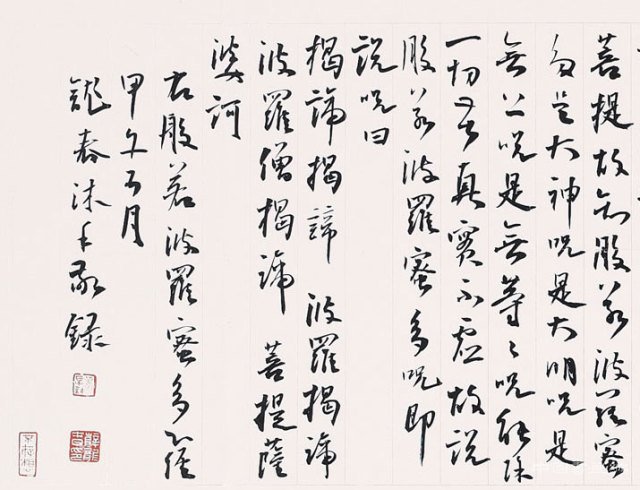 菩提故知般若波羅蜜
多是大神呪是大明呪是
無上呪是無等〻呪能除
一切苦真實不虛故説
般若波羅蜜多呪即
説呪曰
揭諦揭諦 波羅揭諦
波羅僧揭諦 菩提薩
婆訶
右般若波羅蜜多心經
甲午五月
春沐手敬録